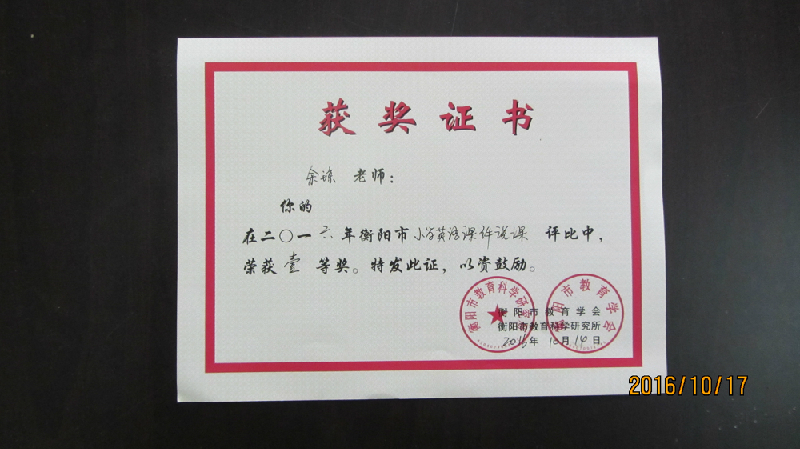 获奖证书
老师：
你的
在二〇一六年衡阳市小学英语课件说课 评比中，
荣获 壹 等奖。特发此证，以资鼓励。
衡阳市教育学会
衡阳市教育科学研究所
2016年 10月14日
衡阳市教育科学研究所
衡阳市教育学会
2016/10/17